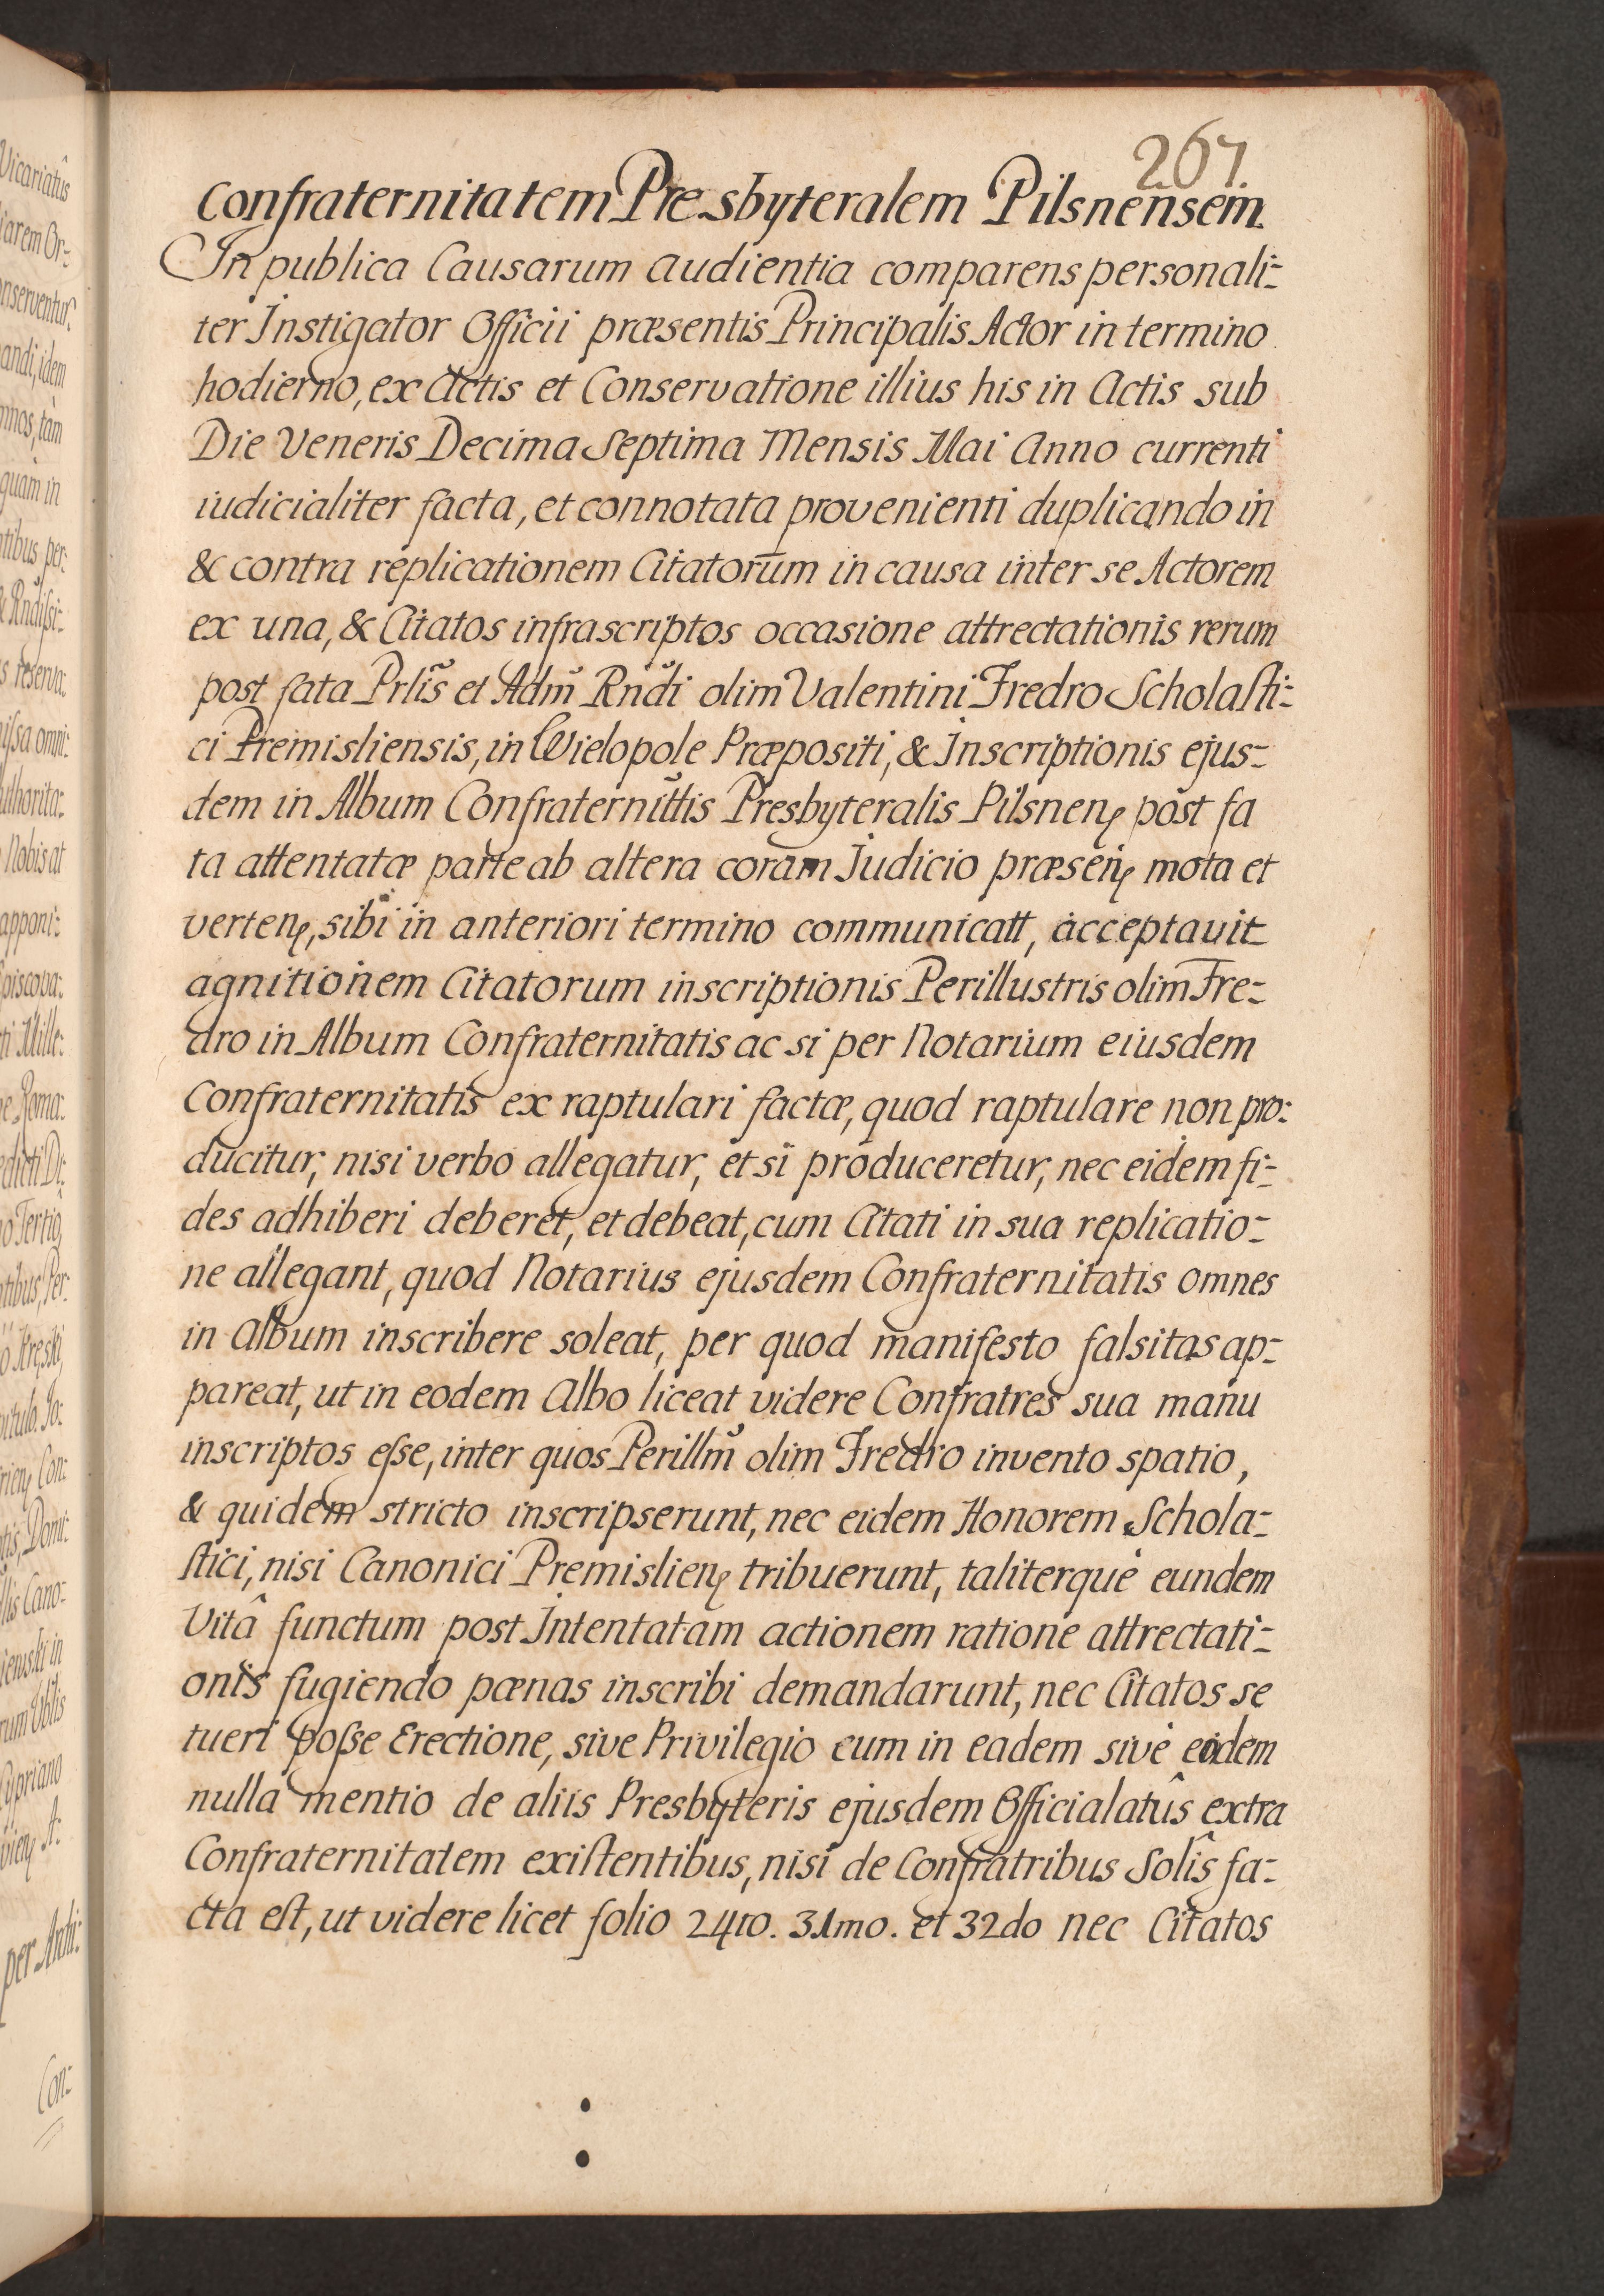 267.
Confraternitatem Presbyteralem Pilsnensem.
In publica Causarum audientia comparens personali-
ter Instigator Officii præsentis Principalis Actor in termino
hodierno, ex Actis et Conservatione illius his in Actis sub
Die Veneris Decima Septima Mensis Mai Anno currenti
iudicialiter facta, et connotata provenienti duplicando in
& contra replicationem Citatorum in causa inter se Actorem
ex una, & Citatos infrascriptos occasione attrectationis rerum
post fata Prlis et Adm Rndi olim Valentini Fredro Scholasti-
ci Premisliensis, in Wielopole Præpositi, & Inscriptionis ejus-
dem in Album Confraternittis Presbyteralis Pilsnenę post fa
ta attentatæ parte ab altera coram Judicio præsenę mota et
vertenę, sibi in anteriori termino communicatt, acceptauit
agnitionem Citatorum inscriptionis Perillustris olim Fre-
dro in Album Confraternitatis ac si per Notarium eiusdem
Confraternitatis ex raptulari factæ, quod raptulare non pro:
ducitur, nisi verbo allegatur, et si produceretur, nec eidem fi-
des adhiberi deberet, et debeat, cum Citati in sua replicatio-
ne allegant, quod Notarius ejusdem Confraternitatis omnes
in Album inscribere soleat, per quod manifesto falsitas ap-
pareat, ut in eodem Albo liceat videre Confratres sua manu
inscriptos esse, inter quos Perillm olim Fredro invento spatio,
& quidem stricto inscripserunt, nec eidem Honorem Schola-
stici, nisi Canonici Premislienę tribuerunt, taliterque eundem
Vitâ functum post Intentatam actionem ratione attrectati-
onis fugiendo pœnas inscribi demandarunt, nec Citatos se
tueri posse Erectione, sive Privilegio cum in eadem sive eodem
nulla mentio de aliis Presbyteris ejusdem Officialatûs extra
Confraternitatem existentibus, nisi de Confratribus Solîs fa-
cta est, ut videre licet folio 24to. 31mo. et 32do nec Citatos